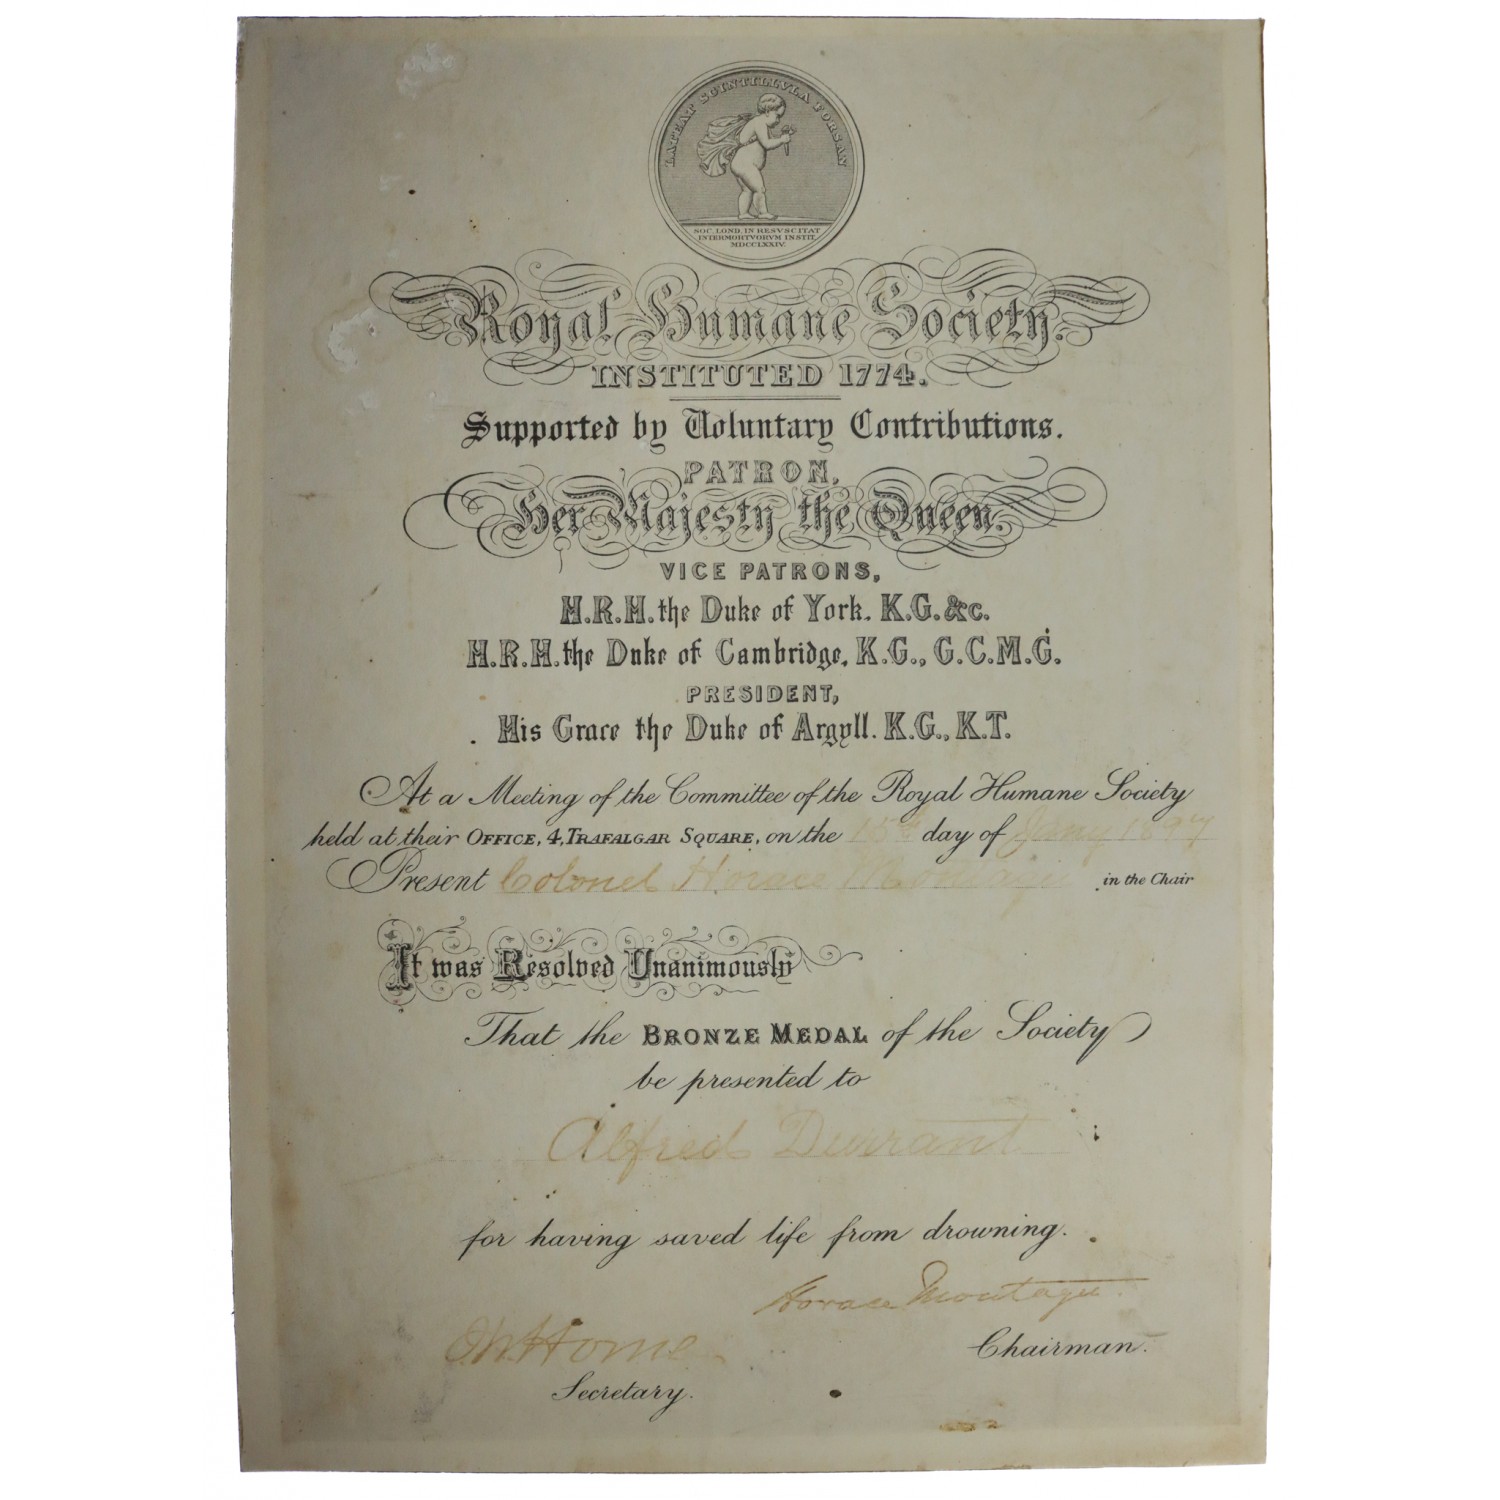 LATEAT SCINTILLVLA FORSAN
SOC. LOND. IN RESVSCITAT
INTERMORTVORVM INSTIT.
MDCCLXXIV.
Royal Humane Society.
INSTITUTED 1774.
Supported by Voluntary Contributions.
PATRON,
Her Majesty the Queen.
VICE PATRONS,
H.R.H. the Duke of York. K.G. &c.
H.R.H. the Duke of Cambridge, K.G., G.C.M.G.
PRESIDENT,
His Grace the Duke of Argyll. K.G., K.T.
At a Meeting of the Committee of the Royal Humane Society
held at their OFFICE, 4, TRAFALGAR SQUARE, on the 15th day of Jany 1897
Present Colonel Horace Montagu in the Chair
It was Resolved Unanimously
That the BRONZE MEDAL of the Society
be presented to
Alfred Durrant
for having saved life from drowning.
Horace Montagu.
Chairman.
Home
Secretary.